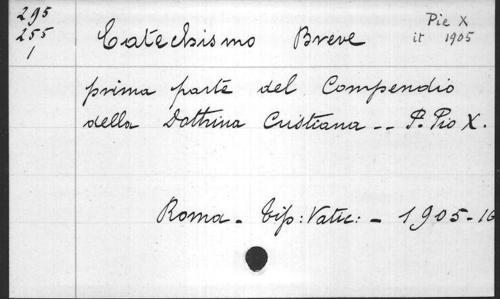 295
255
1
Pie X
it 1905
Catechismo Breve
prima parte del Compendio
della Dottrina Cristiana -- P. Pio X.
Roma - Tip: Vatic: - 1905-16